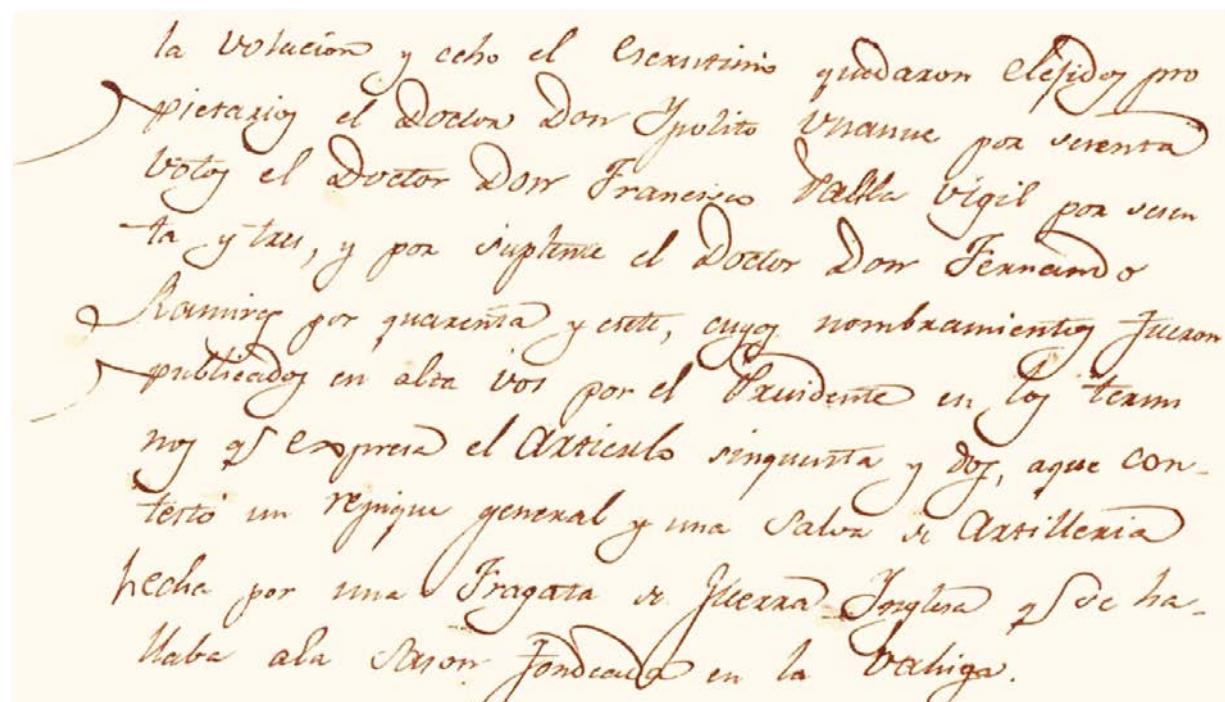 la votacion y echo el escrutinio quedaron elejidos pro
pietarios el Doctor Don Ypolito Unanue por setenta
votos el Doctor Don Francisco Valle Vigil por sesen
ta y tres, y por suplente el Doctor Don Fernando
Ramires por quarenta y ciete, cuyos nombramientos fueron
publicados en alta vos por el Presidente en los termi
nos qe expresa el Articulo sinquenta y dos, aque con-
testó un repique general y una Salva de Artilleria
hecha por una Fragata de Guerra Ynglesa qe se ha-
llaba ala sason fondeada en la Vahiga.